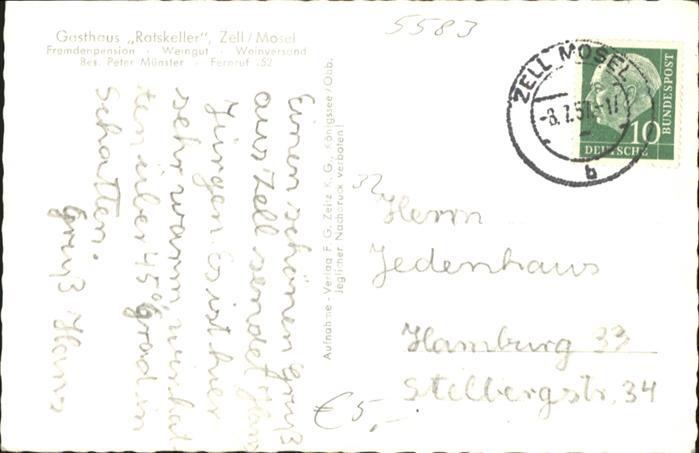 Gasthaus „Ratskeller", Zell/Mosel
Fremdenpension · Weingut · Weinversand
Bes. Peter Münster · Fernruf 252
5583
Einen schönen Gruß
aus Zell sendet Hans
Jürgen. Es ist hier
sehr warm, wir hat-
ten über 45° Grad in
Schatten.
Gruß Hans
Aufnahme - Verlag F. G. Zeitz K. G., Königssee/Obb.
Jeglicher Nachdruck verboten!
ZELL MOSEL
-8.7.57.-17
b
10
DEUTSCHE
BUNDESPOST
32
Herrn
Jedenhaus
Hamburg 33
Stelbergstr. 34
€ 5,-